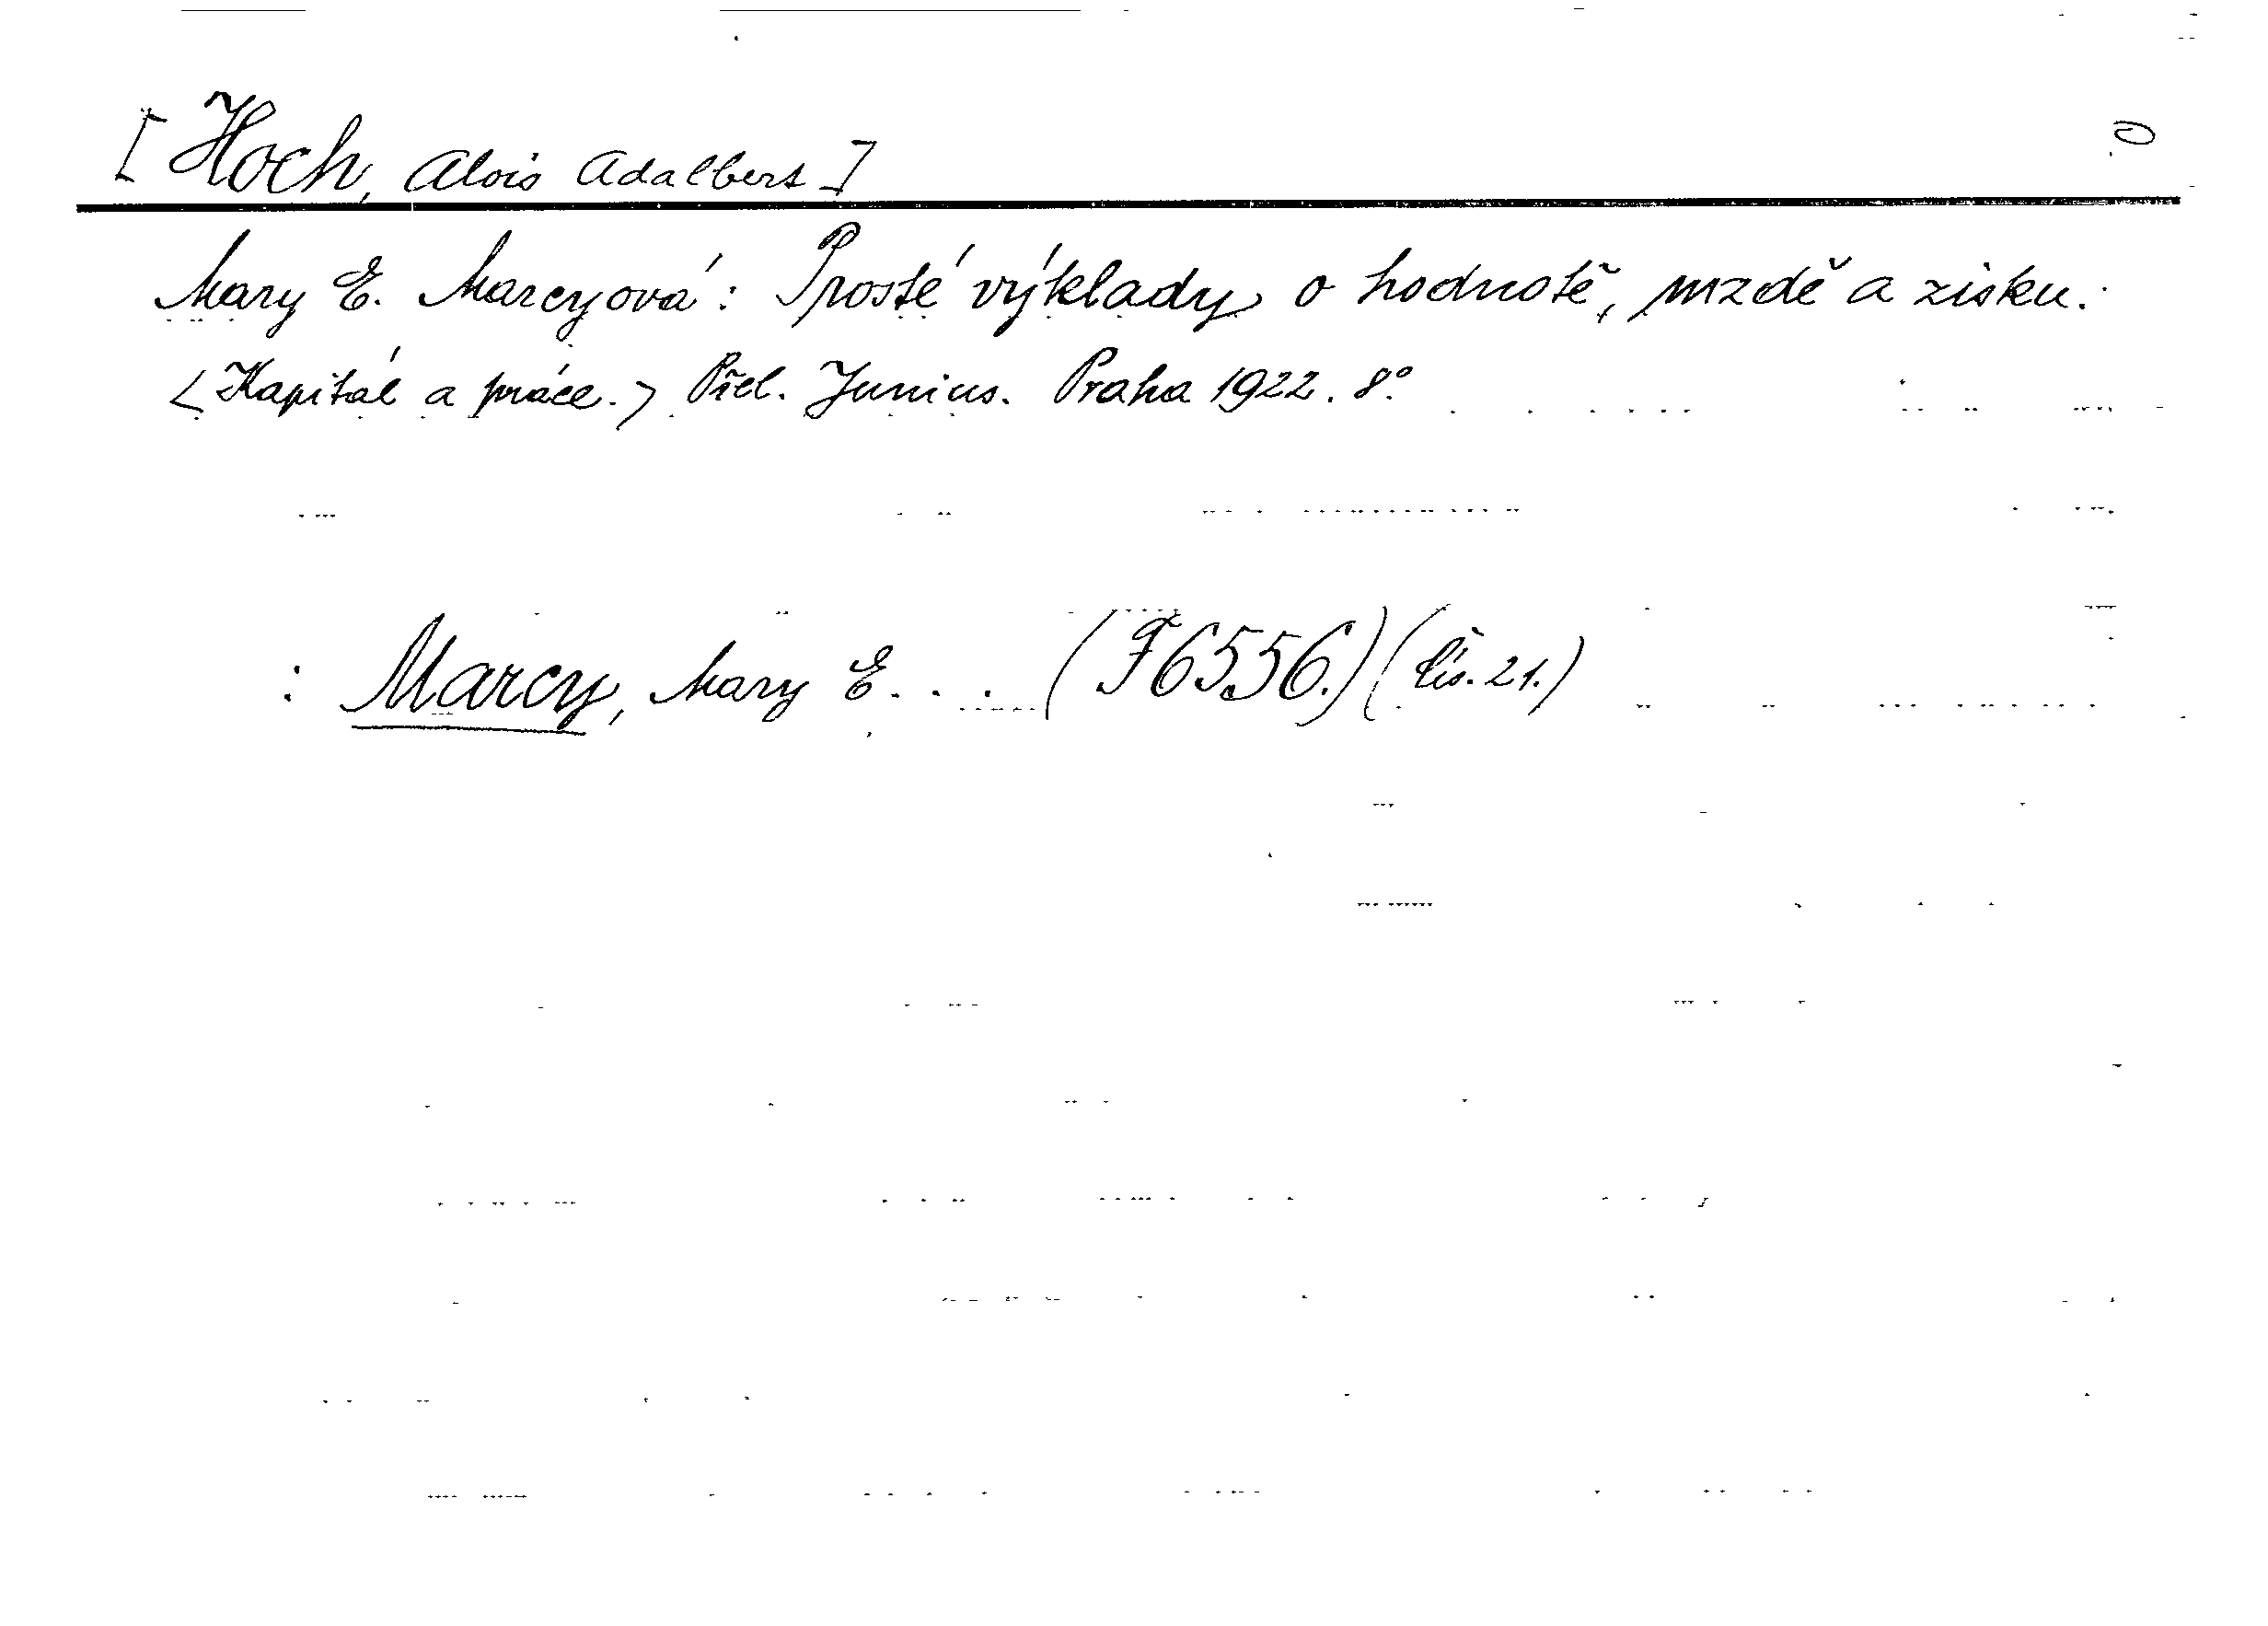 [Hoch, Alois Adalbert]
Mary E. Marcyová: Prosté výklady o hodnotě, mzdě a zisku.
<Kapitál a práce.> Přel. Junius. Praha 1922. 8°.
: Marcy, Mary E. . . (F 6556.) (čís. 21.)